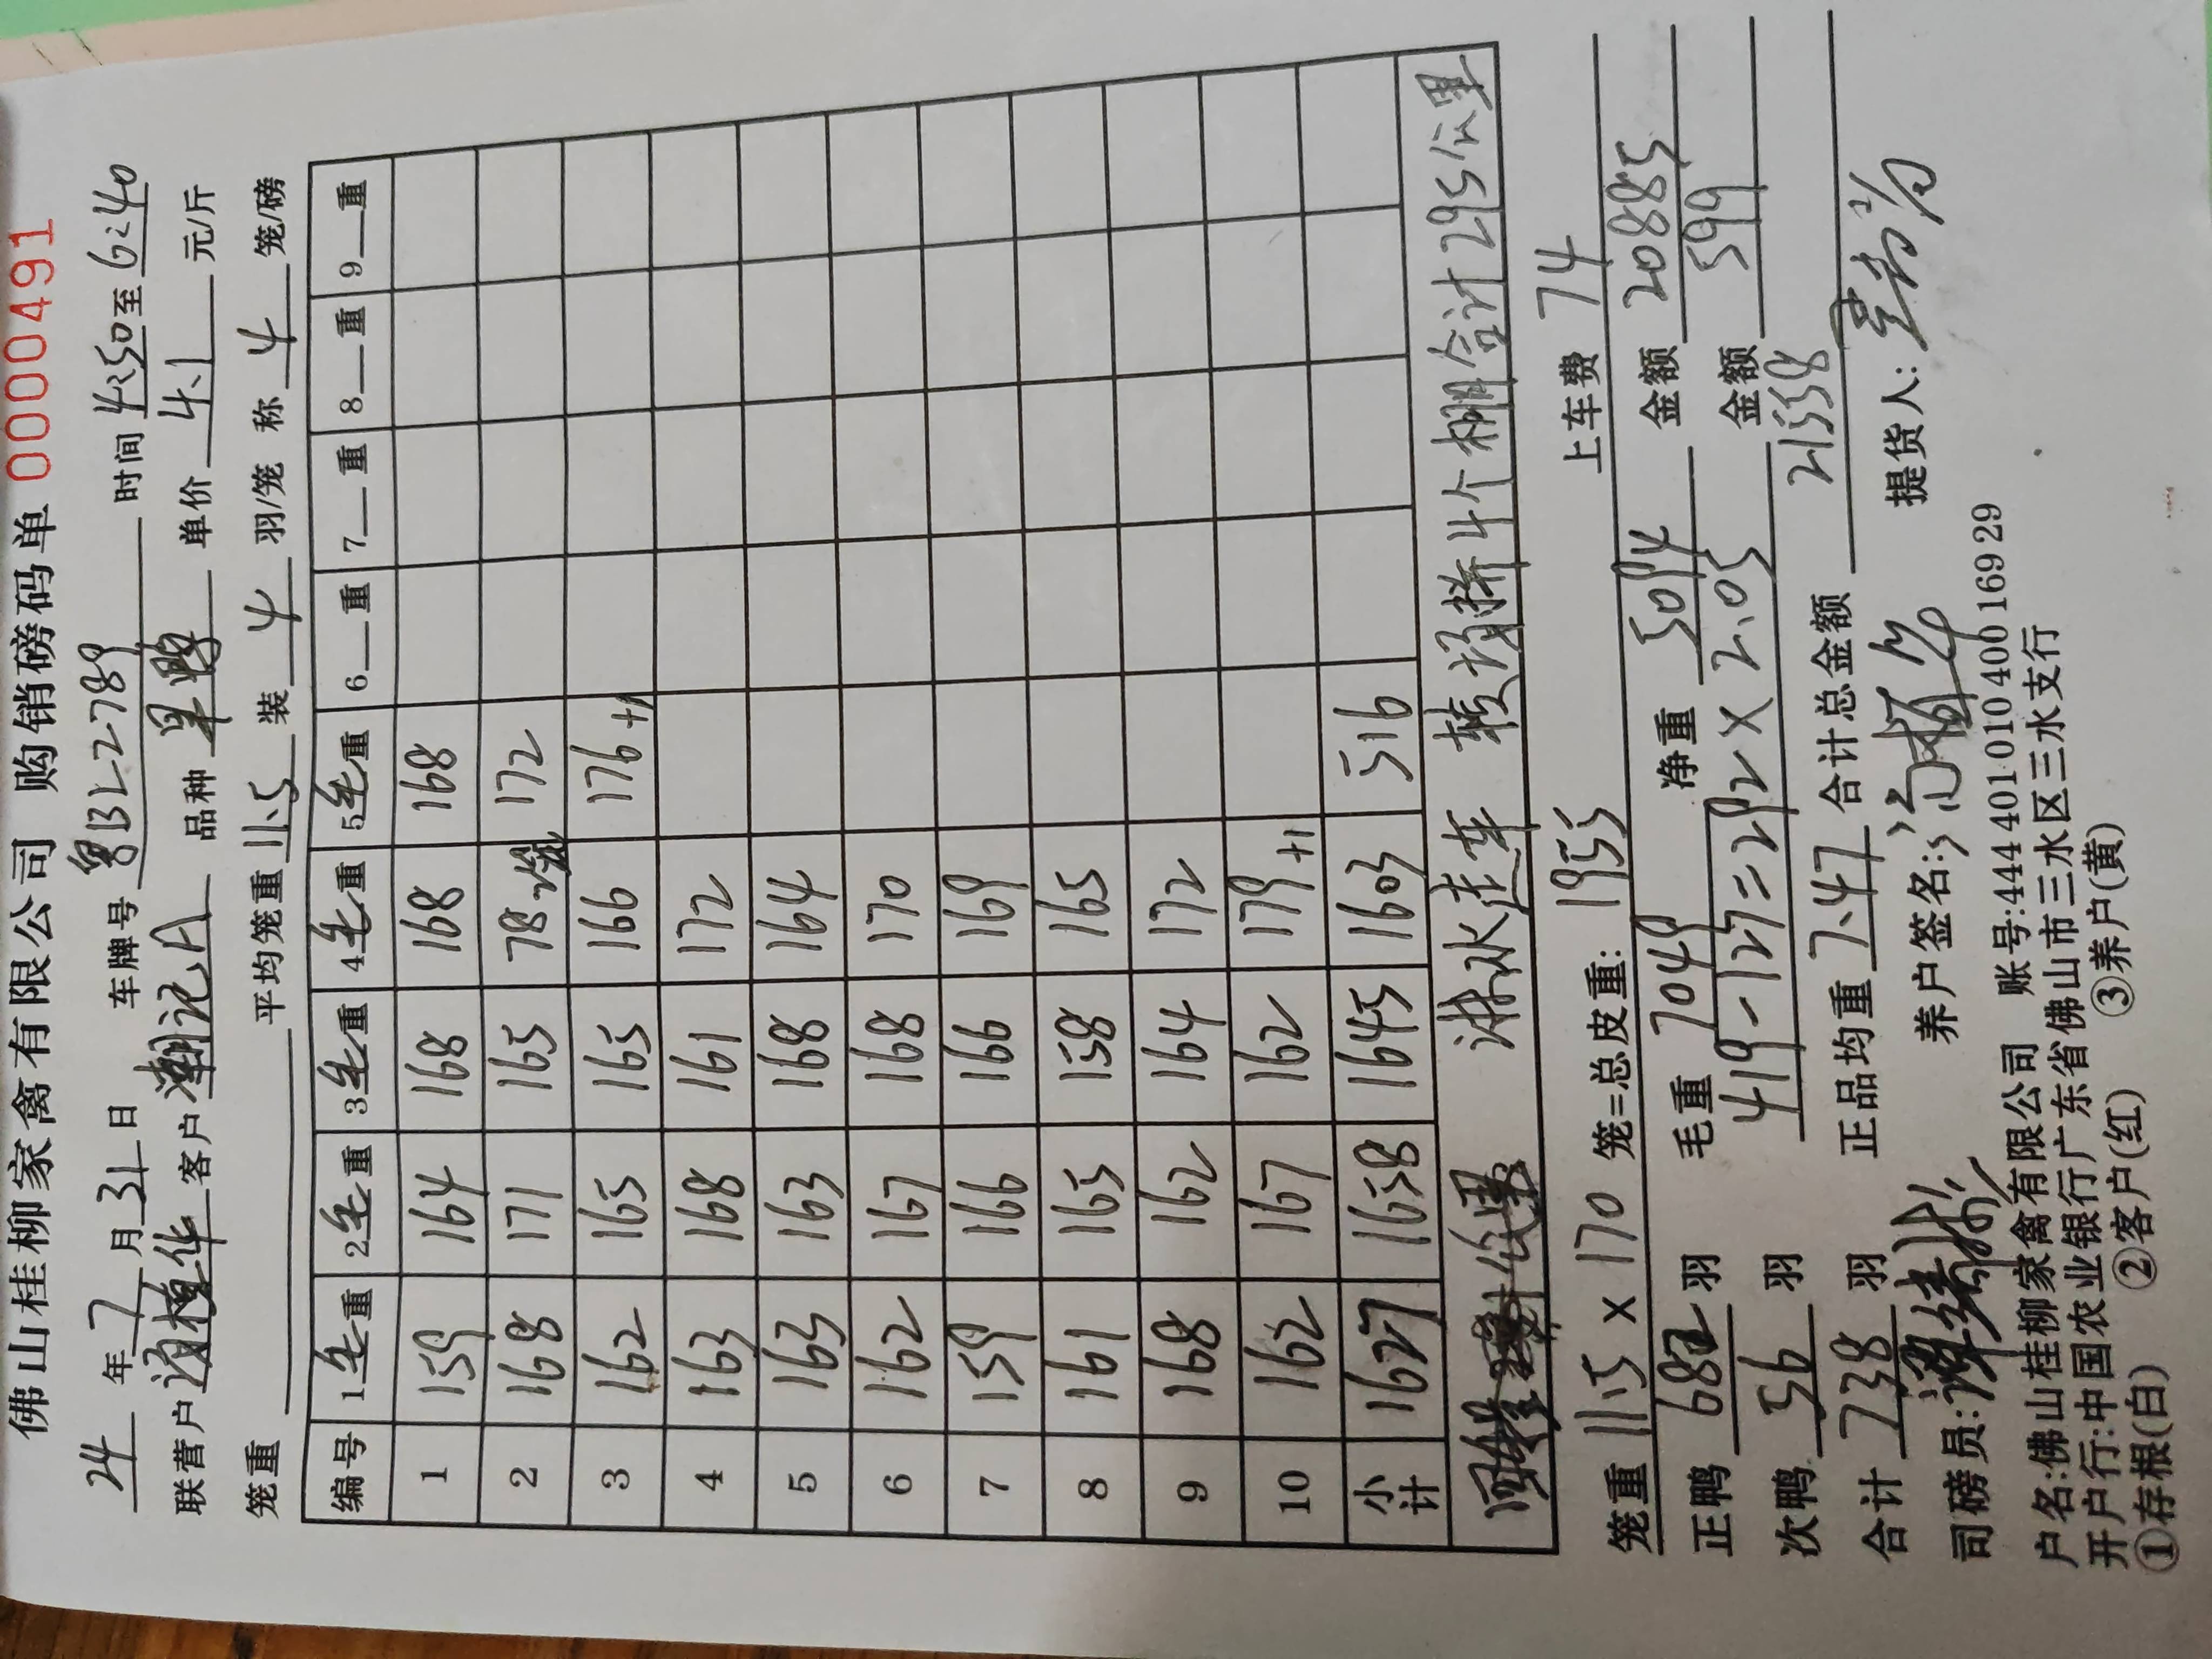 佛山桂柳家禽有限公司 购销磅码单 0000491
24 年 7 月 31 日 车牌号 粤BL2789 时间 4:50 至 6:40
联营户 植华 客户 潮记A 品种 单价 4.1 元/斤
笼重 平均笼重 11.5 装 4 羽/笼 称 4 笼/磅
编号 1毛重 2毛重 3毛重 4毛重 5毛重 6 重 7 重 8 重 9 重
1 159 164 168 168 168
2 168 171 165 78-2笼 172
3 162 165 165 166 176+1
4 163 168 161 172
5 163 163 168 164
6 162 167 168 170
7 159 166 166 169
8 161 165 158 165
9 168 162 164 172
10 162 167 162 179+1
小计 1627 1658 1645 1603 516
淋水走车 转场拼4个棚合计295公里
笼重 11.5 × 170 笼=总皮重: 1955 上车费 74
正鸭 682 羽 毛重 7049 净重 5094 金额 20885
次鸭 56 羽 419-127=292×2.05 金额 599
合计 738 羽 正品均重 7.47 合计总金额 21558
司磅员: 养户签名: 提货人:
户名:佛山桂柳家禽有限公司 账号:44440101040016929
开户行:中国农业银行广东省佛山市三水区三水支行
①存根(白) ②客户(红) ③养户(黄)